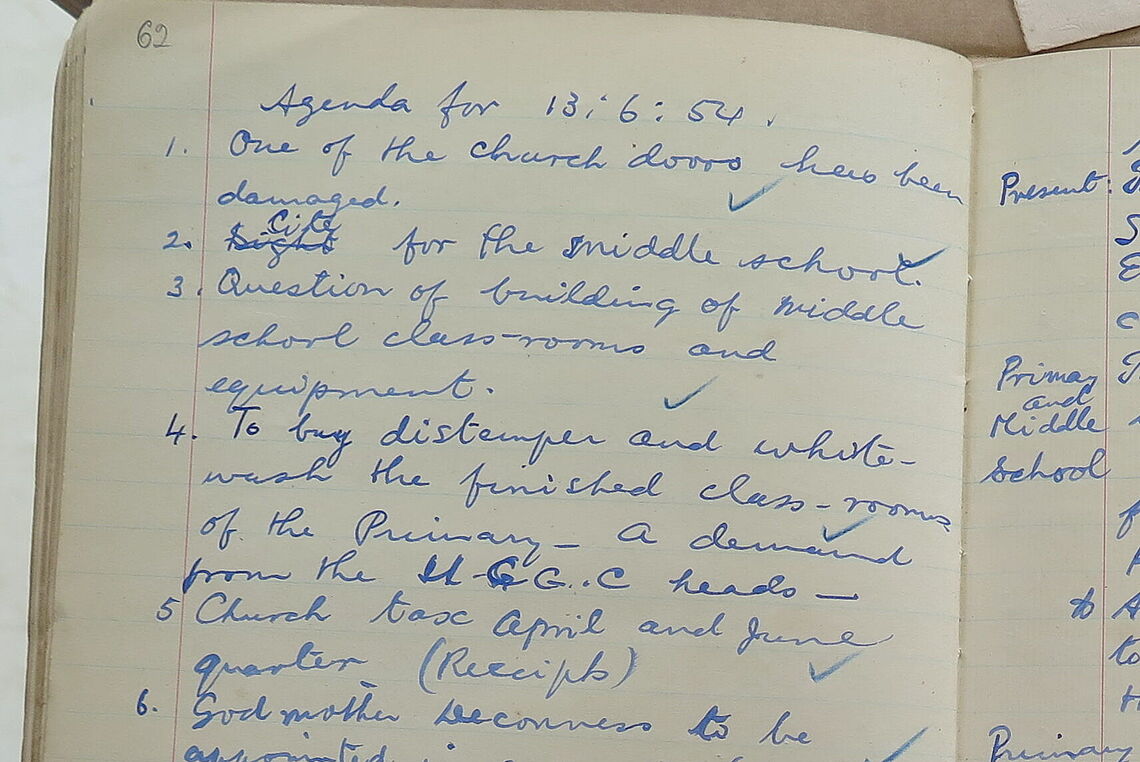 62
Agenda for 13:6:54.
1. One of the church doors has been
damaged.
2. Cite for the middle school.
3. Question of building of middle
school class-rooms and
equipment.
4. To buy distemper and white-
wash the finished class-rooms
of the Primary — A demand
from the G..C heads —
5 Church tax April and June
quarter (Receipts)
6. Godmother Deconness to be
appointed
Present:
Primary
and
Middle
School
to
Primary